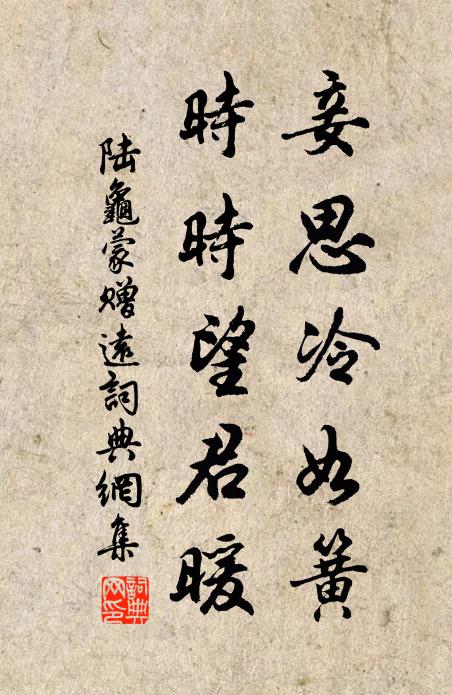 妾思冷如簧
時時望君暖
陸龜蒙贈遠詞典網集
詞典网印